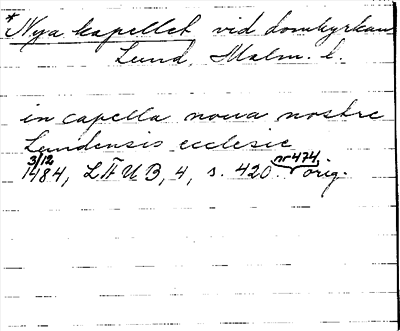 * Nya kapellet vid domkyrkan
Lund, Malm. l.
in capella noua nostre
Lundensis ecclesie
3/12 nr 474,
1484, LÄUB, 4, s. 420. orig.